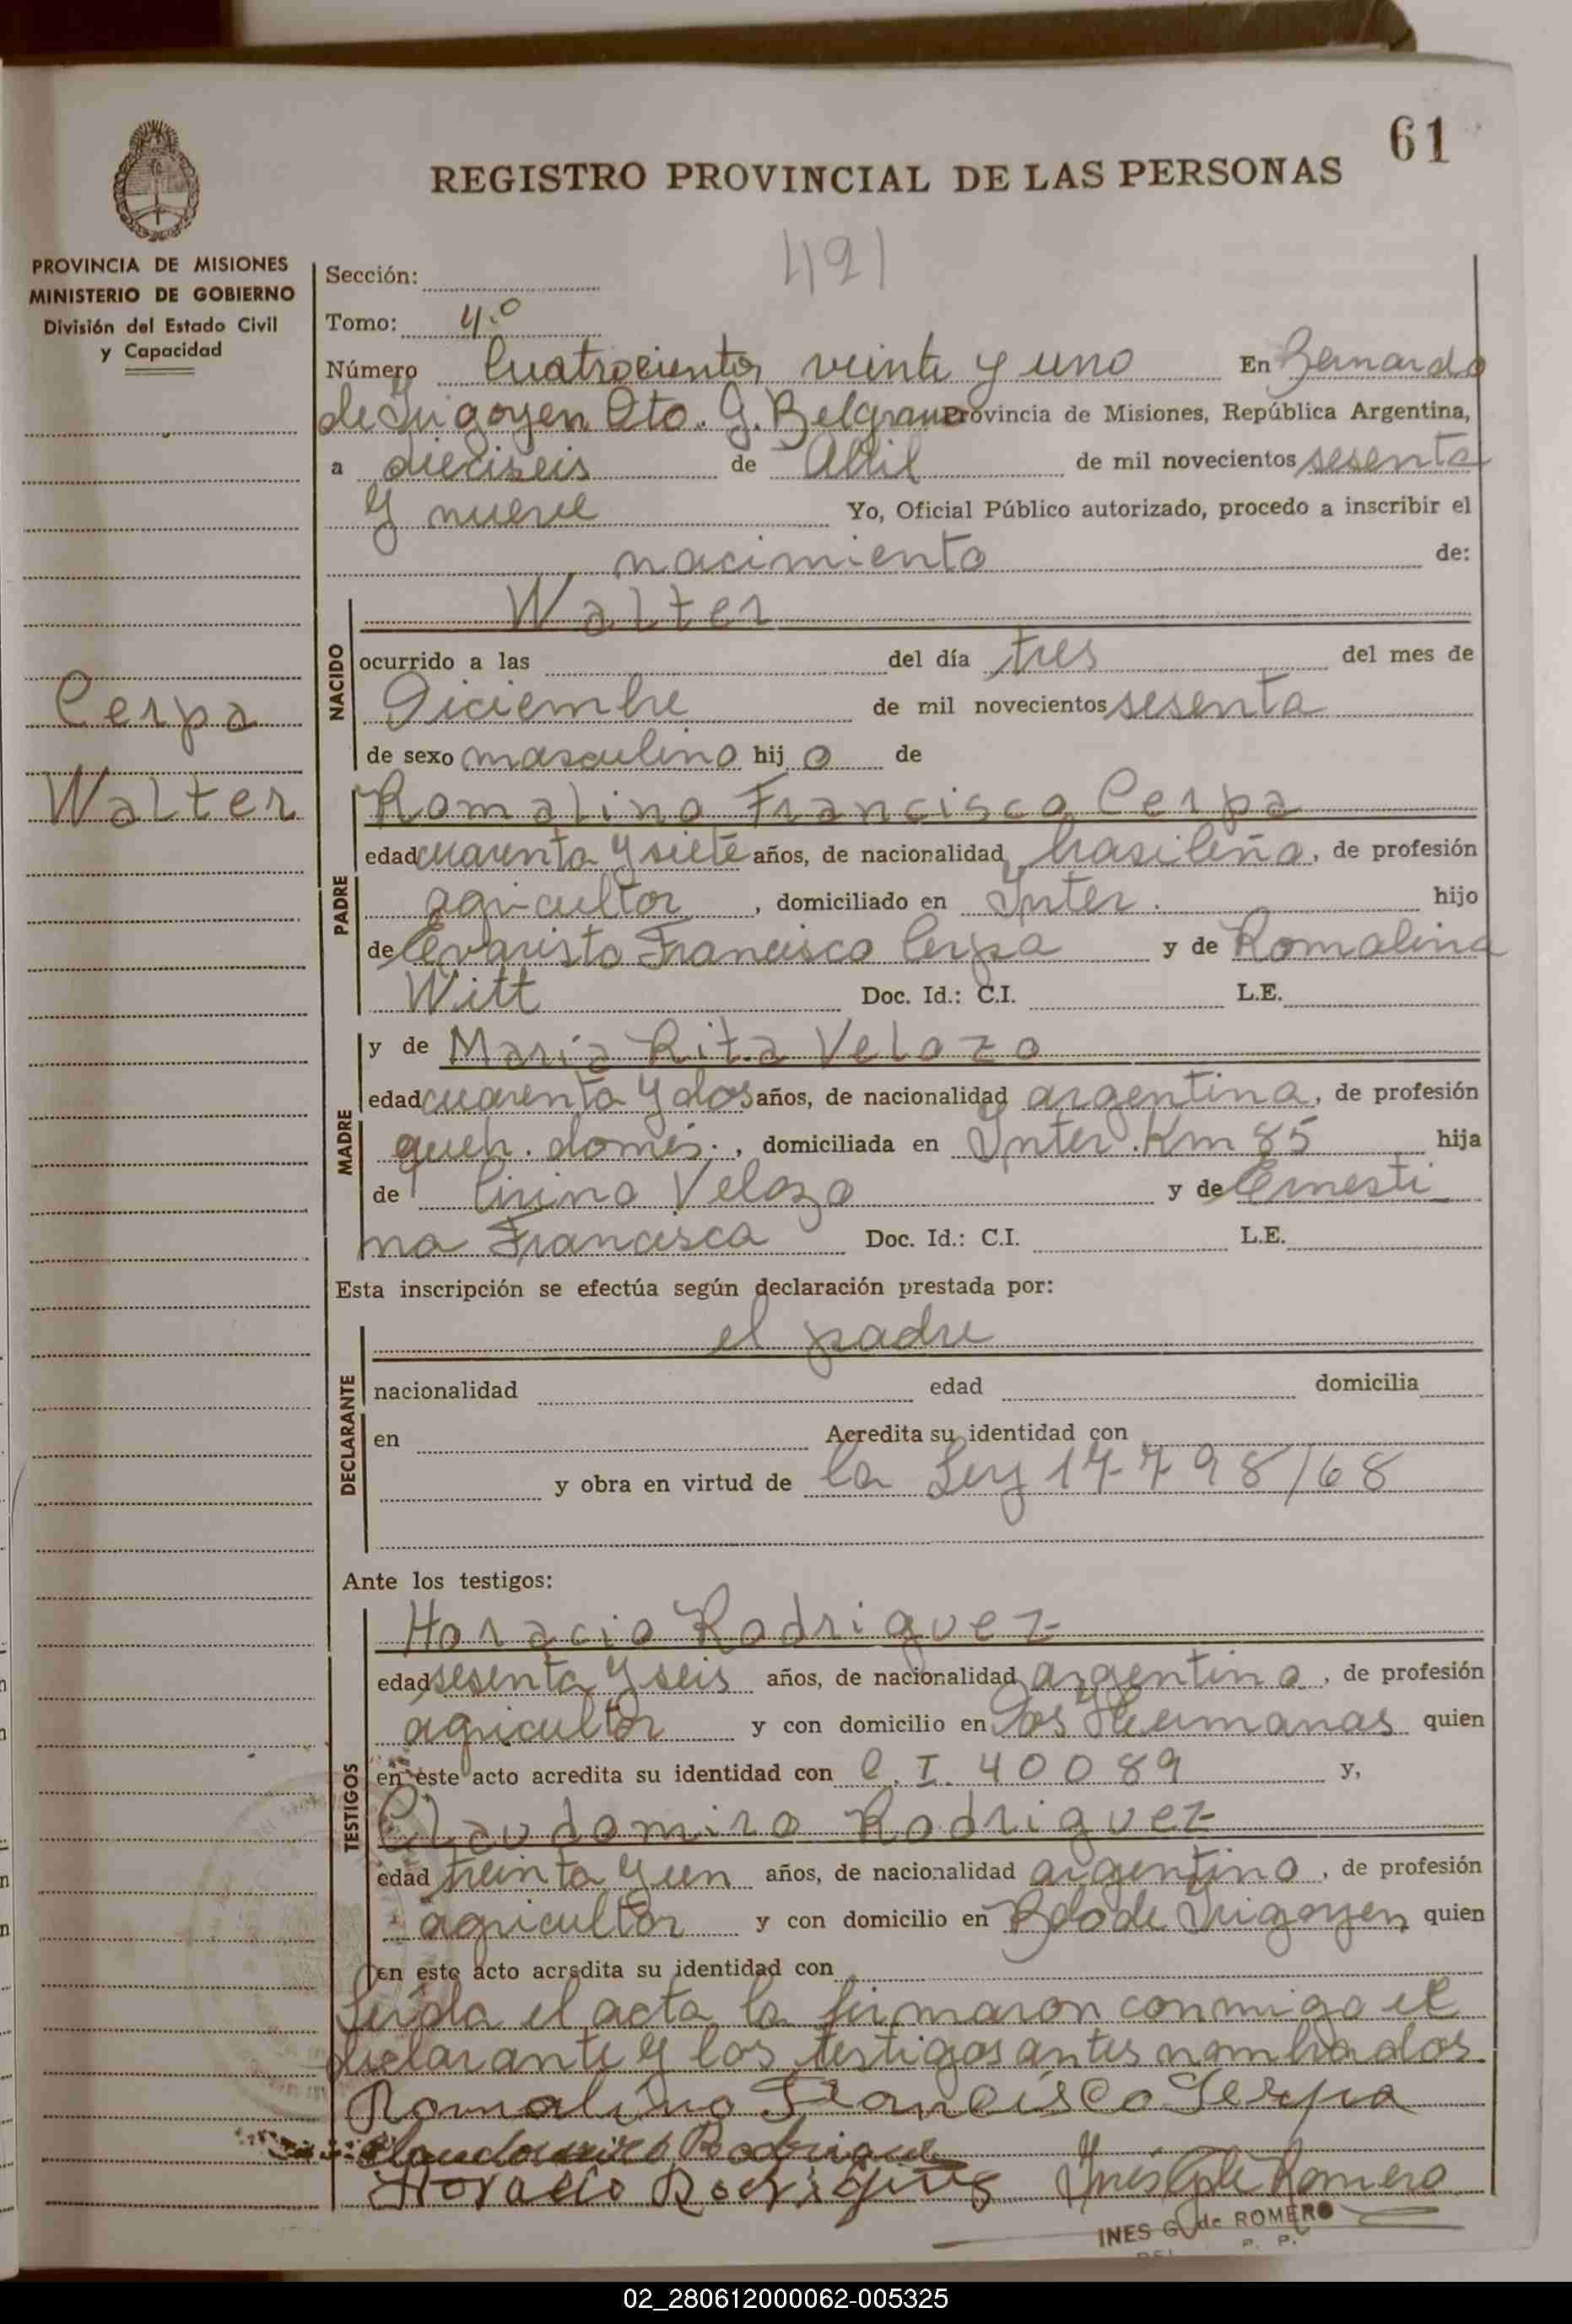 61
REGISTRO PROVINCIAL DE LAS PERSONAS
PROVINCIA DE MISIONES
MINISTERIO DE GOBIERNO
División del Estado Civil
y Capacidad
421
Sección:
Tomo: 4.º
Número Cuatrocientos veinte y uno En Bernardo
de Irigoyen Dto. G. Belgrano Provincia de Misiones, República Argentina,
a dieciseis de Abril de mil novecientos sesenta
y nueve Yo, Oficial Público autorizado, procedo a inscribir el
nacimiento de:
NACIDO
Walter
ocurrido a las del día tres del mes de
Diciembre de mil novecientos sesenta
de sexo masculino hij o de
Cerpa
Walter
PADRE
Romalino Francisco Cerpa
edad cuarenta y siete años, de nacionalidad brasileña, de profesión
agricultor, domiciliado en Inter. hijo
de Evaristo Francisco Cerpa y de Romalina
Witt Doc. Id.: C.I. L.E.
MADRE
y de María Rita Velozo
edad cuarenta y dos años, de nacionalidad argentina, de profesión
queh. domés., domiciliada en Inter. Km 85 hija
de Cirino Velozo y de Ernesti
na Francisca Doc. Id.: C.I. L.E.
Esta inscripción se efectúa según declaración prestada por:
DECLARANTE
el padre
nacionalidad edad domicilia
en Acredita su identidad con
y obra en virtud de la Ley 17798/68
Ante los testigos:
TESTIGOS
Horacio Rodriguez
edad sesenta y seis años, de nacionalidad argentino, de profesión
agricultor y con domicilio en Dos Hermanas quien
en este acto acredita su identidad con C.I. 40089 y,
Claudomiro Rodriguez
edad treinta y un años, de nacionalidad argentino, de profesión
agricultor y con domicilio en Bdo de Irigoyen quien
en este acto acredita su identidad con
Leída el acta la firmaron conmigo el
declarante y los testigos antes nombrados.
Romalino Francisco Serpa
Claudomiro Rodrigues
Horacio Rodrigues Inés G de Romero
INES G. de ROMERO
02_280612000062-005325